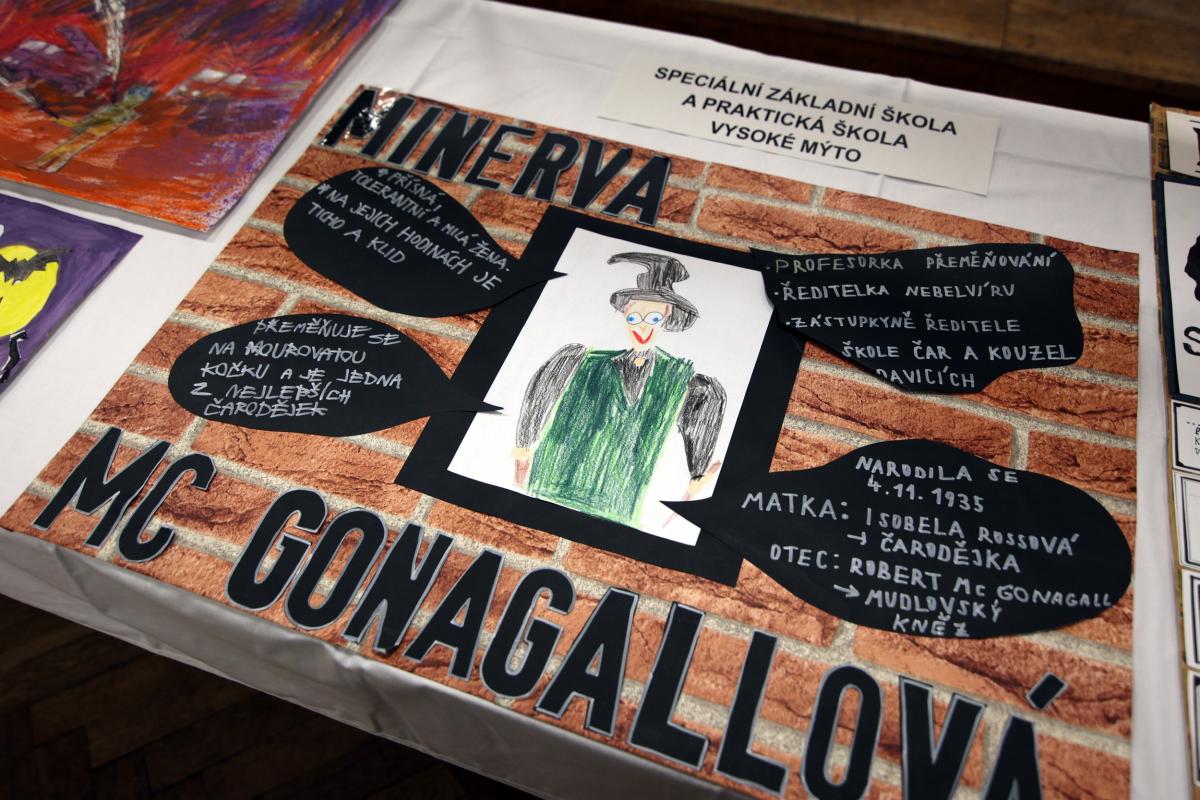 SPECIÁLNÍ ZÁKLADNÍ ŠKOLA
A PRAKTICKÁ ŠKOLA
VYSOKÉ MÝTO
MINERVA
* PŘÍSNÁ,
TOLERANTNÍ A MILÁ ŽENA.
* NA JEJICH HODINÁCH JE
TICHO A KLID
PŘEMĚŇUJE SE
NA MOUROVATOU
KOČKU A JE JEDNA
Z NEJLEPŠÍCH
ČARODĚJEK
• PROFESORKA PŘEMĚŇOVÁNÍ
• ŘEDITELKA NEBELVÍRU
• ZÁSTUPKYNĚ ŘEDITELE
ŠKOLE ČAR A KOUZEL
BRADAVICÍCH
NARODILA SE
4. 11. 1935
MATKA: ISOBELA ROSSOVÁ
→ ČARODĚJKA
OTEC: ROBERT Mc GONAGALL
→ MUDLOVSKÝ
KNĚZ
MC GONAGALLOVÁ